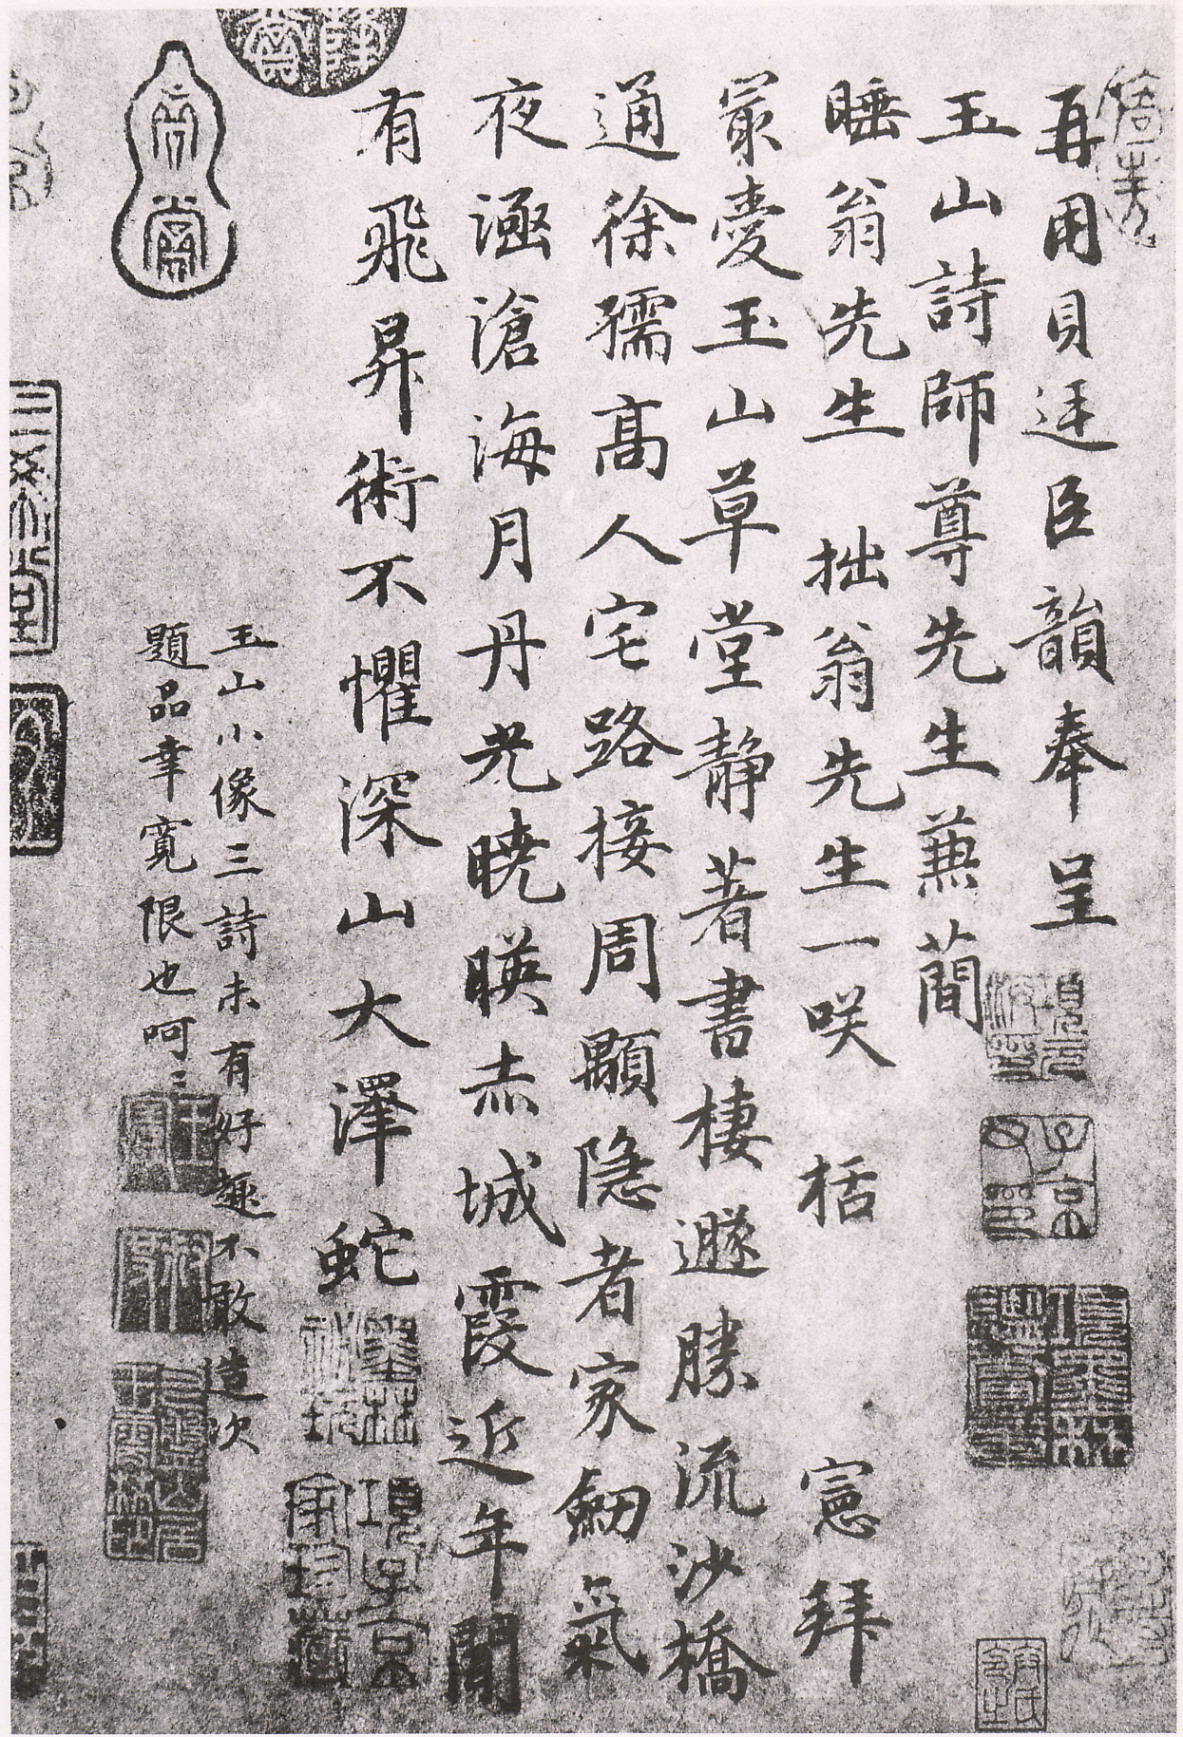 再用貝廷臣韻奉呈
玉山詩師尊先生兼蕳
睡翁先生 拙翁先生一咲 栝 憲拜
冣愛玉山草堂靜著書棲遯勝流沙橋
通徐孺髙人宅路接周顒隐者家劒氣
夜涵滄海月丹光曉暎赤城霞近年聞
有飛昇術不懼深山大澤蛇
玉山小像三詩未有好趣不敢造次
題品幸寛限也呵〻